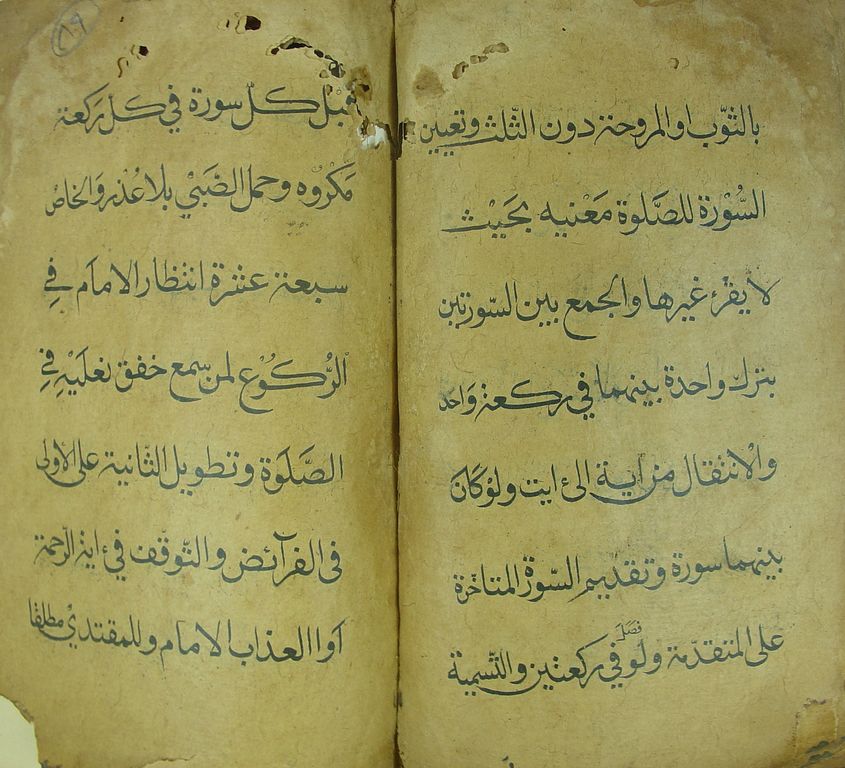 بالثّوب او المروحة دون الثّلث وتعيين
السّورة للصّلوة معنيه بحيث
لا يقرء غيرها والجمع بين السّورتين
بترك واحدة بينهما في ركعة واحد
والانتقال من اية الى ايت ولو كان
بينهما سورة وتقديم السّورة المتاخّرة
فصل
على المتقدّمة ولو في ركعتين والتّسمية
قبل كلّ سورة في كل ركعة
مكروه وحمل الصّبي بلا عذر والخاص
سبعة عشرة انتظار الامام في
الرّكوع لمن سمع خفق نعليه في
الصّلوة وتطويل الثّانية على الاولى
فى الفرآئض والتّوقف في اية الرّحمة
او العذاب الامام وللمقتدي مطلقا